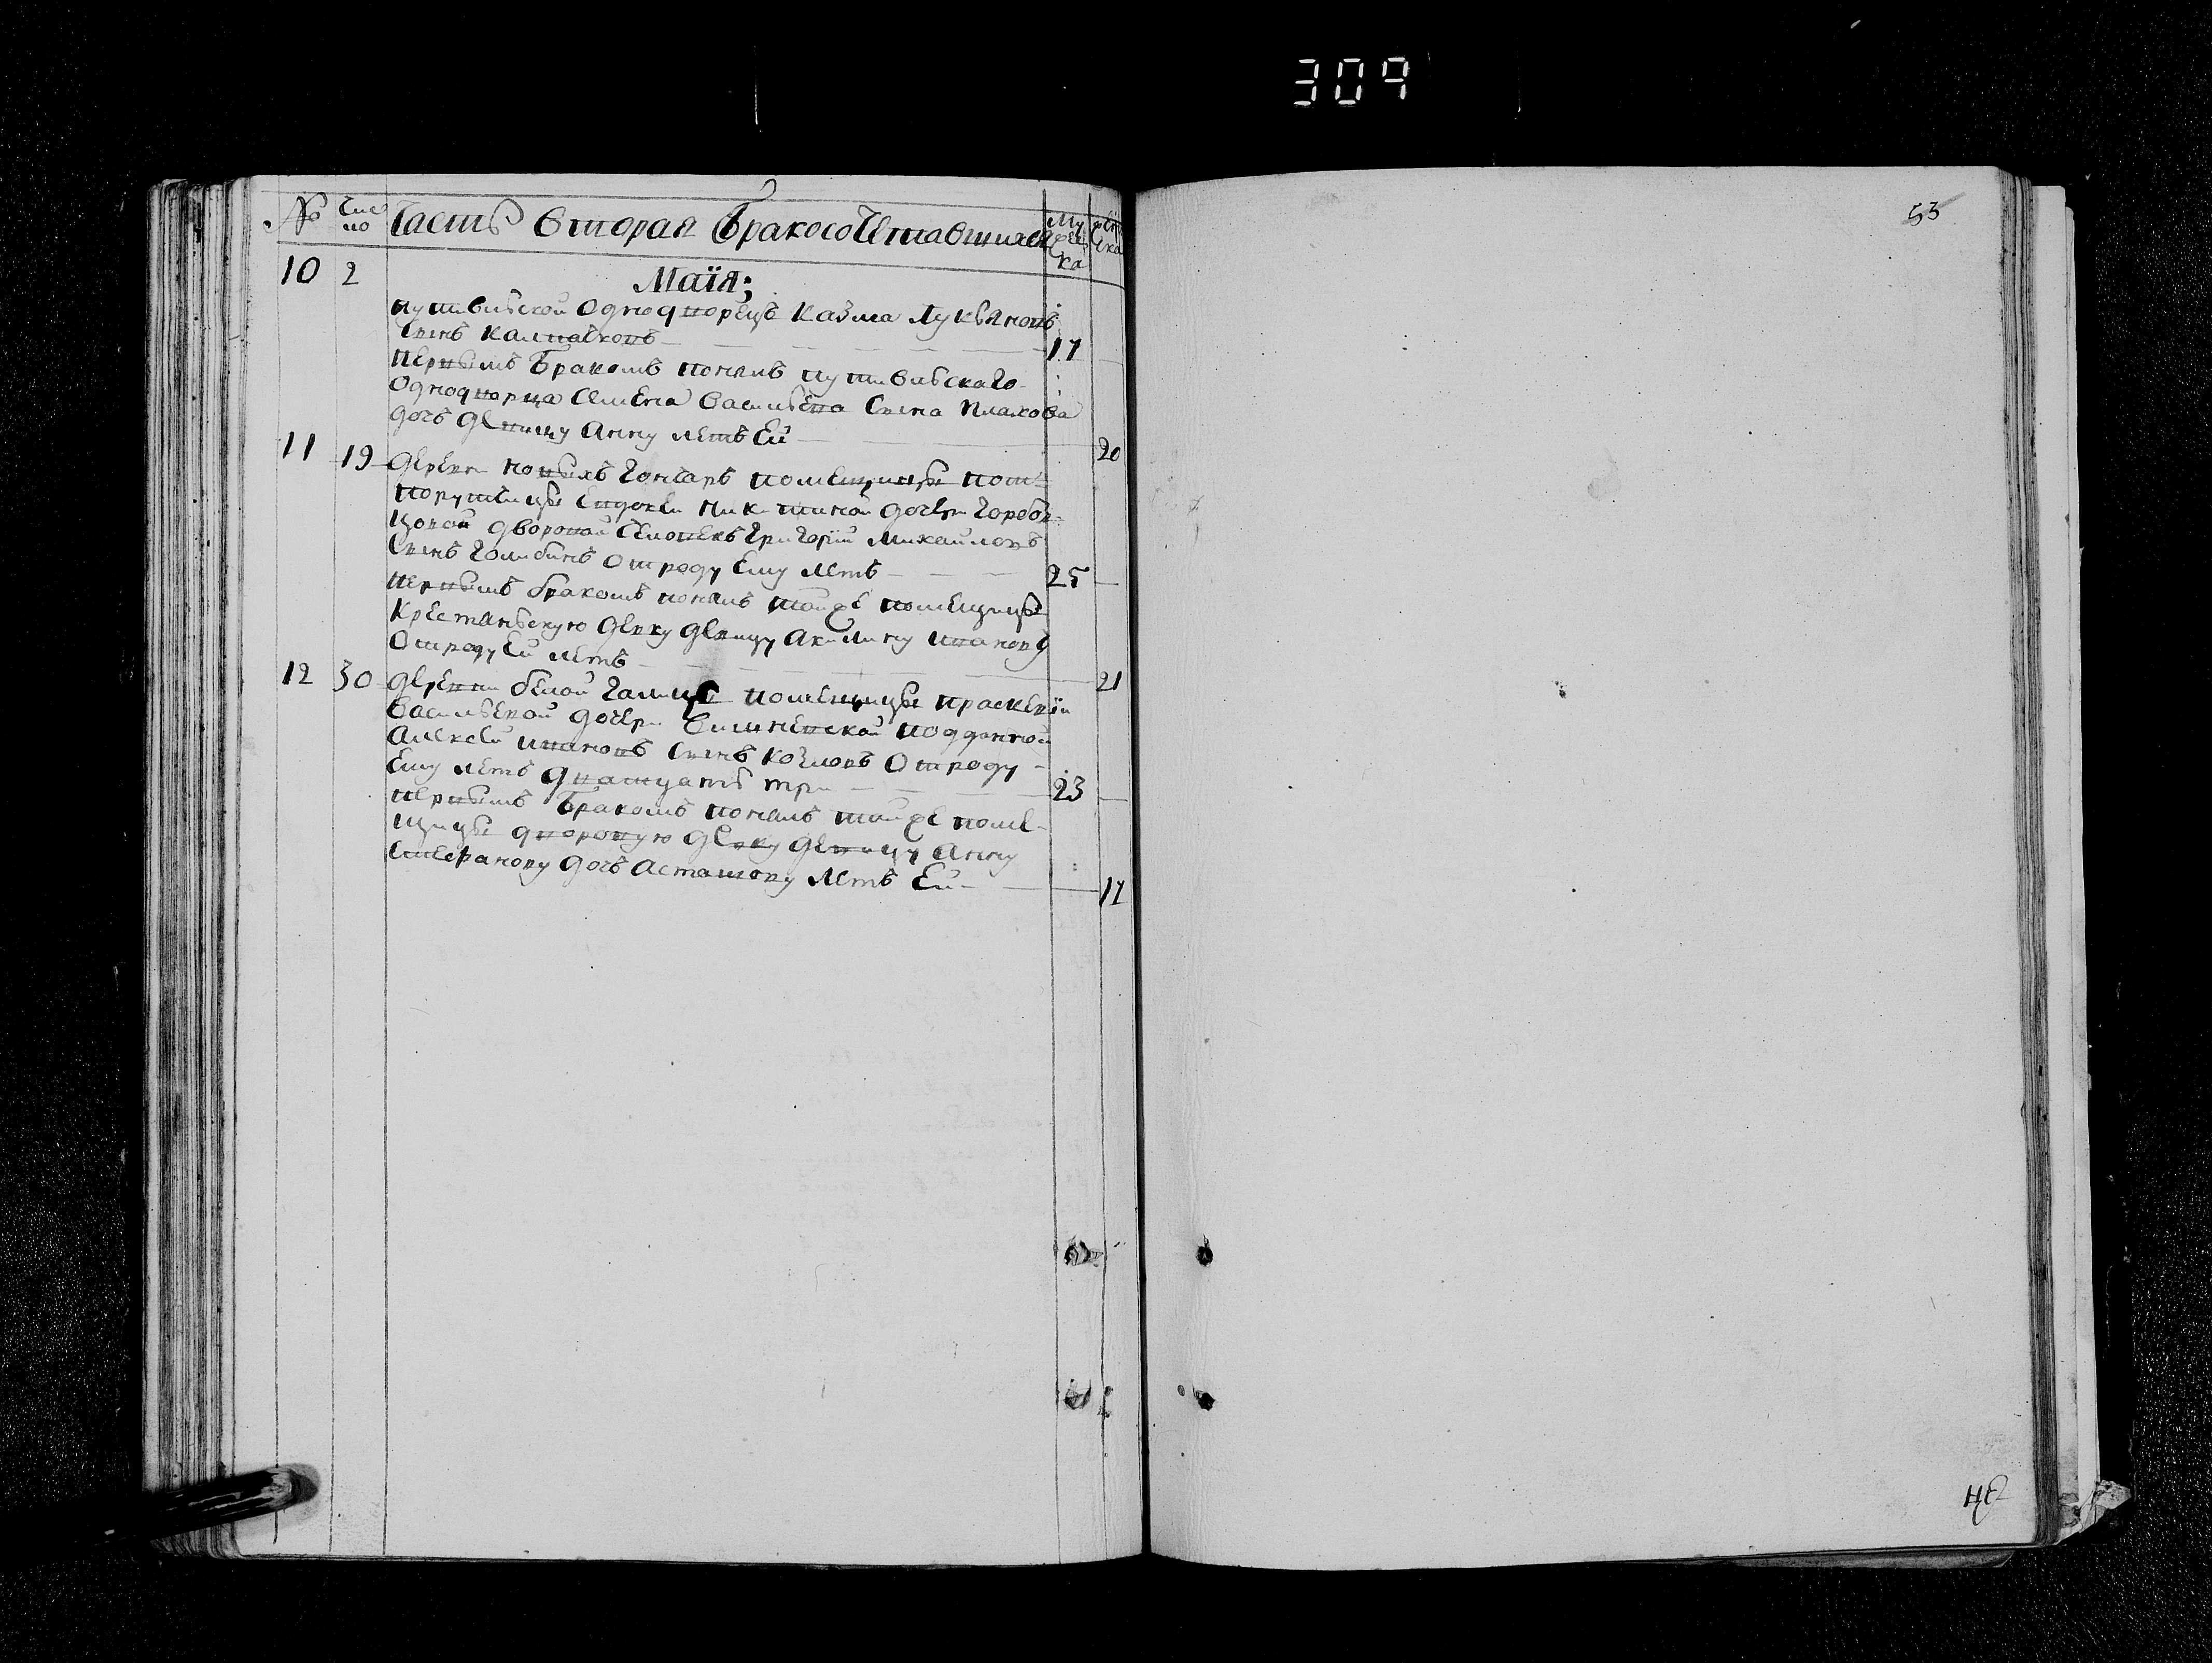 309
№ Число Часть вторая бракосочетавшихся Мужеска женска
53
10 2 Маїя;
путивльской однодворецъ Казма Лукьяновъ
сынъ Калпаковъ 17
первымъ бракомъ понялъ путивльскаго
однодворца Семена Васильева сына Плахова
дочь девицу Анну летъ ей 20
11 19 деревни новыхъ Гончаръ помещицы пот-
порутчицы Евдокеи Никитиной дочери Горебо-
цовой дворовой человекъ Григорїй Михайловъ
сынъ Голибинъ отроду ему летъ 25
первымъ бракомъ понялъ тойже помещицы
крестьянскую девку девицу Акилину Иванову
отроду ей летъ 21
12 30 деревни белой Галицы помещицы Праскевїи
Васильевой дочери Вишневской подданной
Алексей Ивановъ сынъ Козловъ отроду
ему летъ дватцать три 23
первымъ бракомъ понялъ тойже поме-
щицы дворовую девку девицу Анну
дочь Асташову летъ ей 17